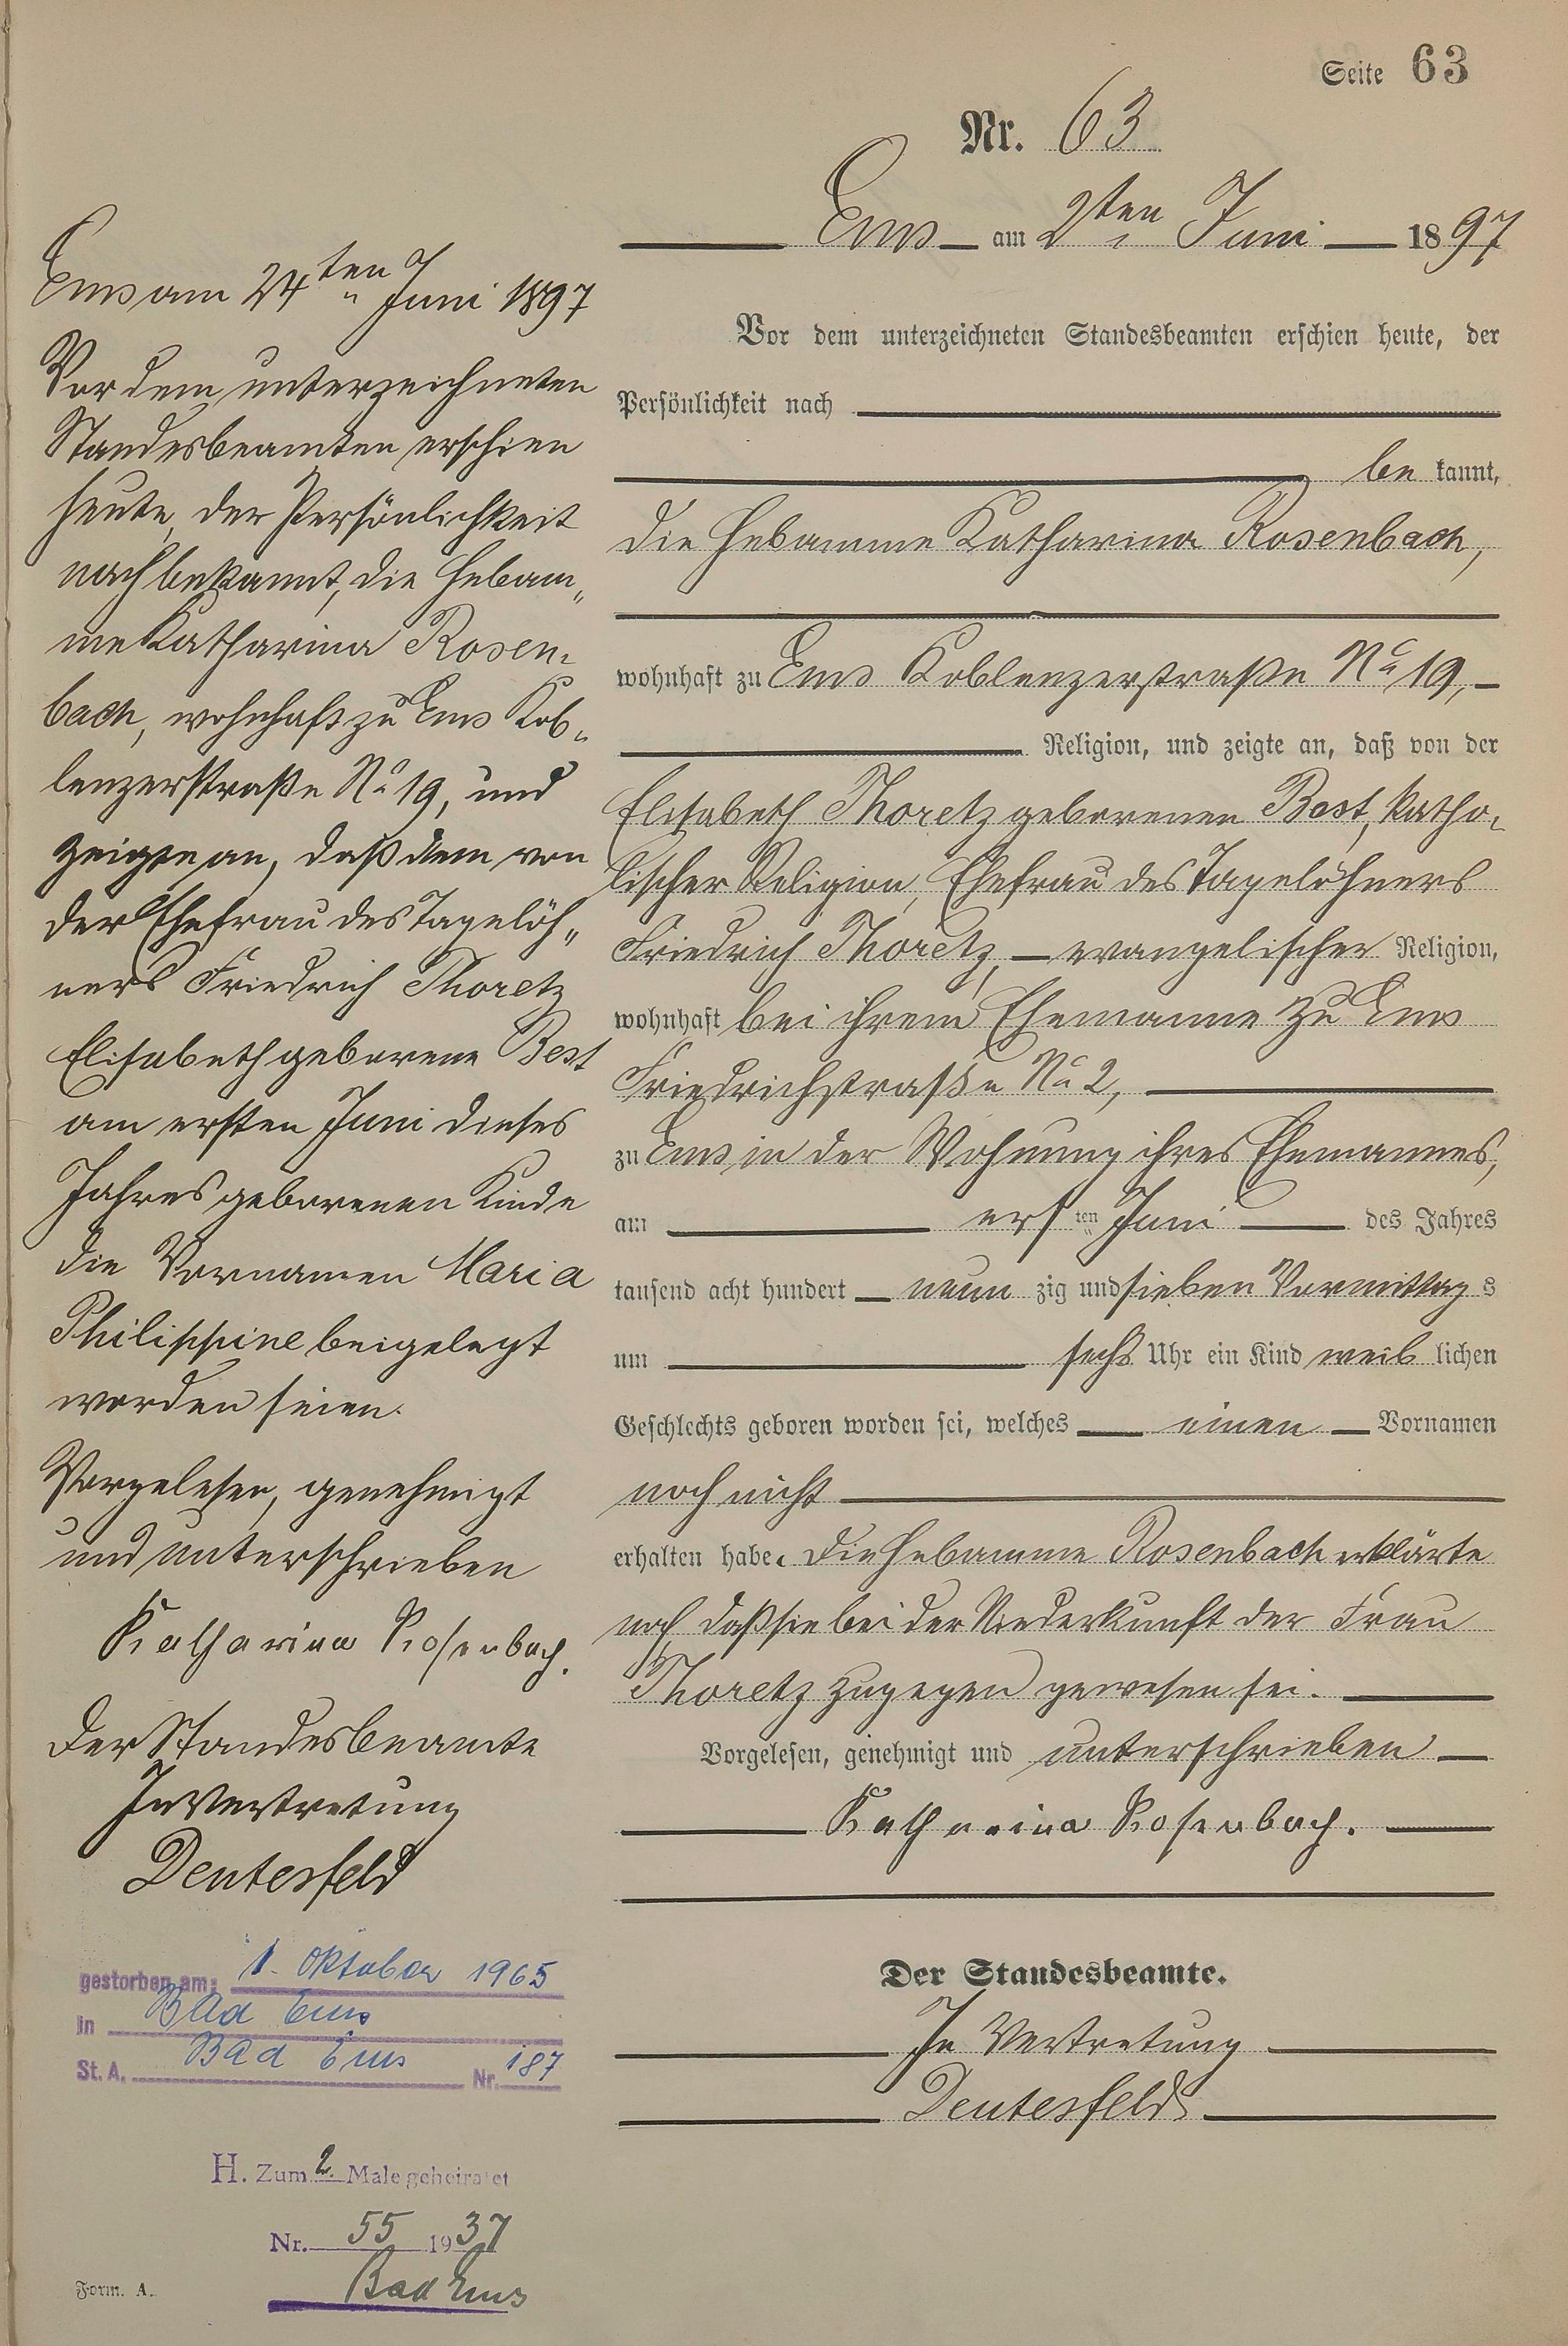 Seite 63
Nr. 63
Ems am 2ten Juni 1897
Vor dem unterzeichneten Standesbeamten erschien heute, der
Persönlichkeit nach
be kannt,
die Hebamme Katharina Rosenbach,
wohnhaft zu Ems Koblenzerstraße No 19,
Religion, und zeigte an, daß von der
Elisabeth Thoretz geborenen Best, katho-
lischer Religion, Ehefrau des Tagelöhners
Friedrich Thoretz, evangelischer Religion,
wohnhaft bei ihrem Ehemanne zu Ems
Friedrichstraße No 2,
zu Ems in der Wohnung ihres Ehemannes,
am ersten Juni des Jahres
tausend acht hundert neun zig und sieben Vormittag s
um sechs Uhr ein Kind weib lichen
Geschlechts geboren worden sei, welches einen Vornamen
noch nicht
erhalten habe. Die Hebamme Rosenbach erklärte
noch daß sie bei der Niederkunft der Frau
Thoretz zugegen gewesen sei.
Vorgelesen, genehmigt und unterschrieben
Katharina Rosenbach.
Der Standesbeamte.
In Vertretung
Deutesfeld
Ems am 24ten Juni 1897
Vor dem unterzeichneten
Standesbeamten erschien
heute, der Persönlichkeit
nach bekannt, die Hebam„
me Katharina Rosen-
bach, wohnhaft zu Ems Kob„
lenzerstraße No 19, und
zeigte an, daß dem von
der Ehefrau des Tagelöh„
ners Friedrich Thoretz
Elisabeth geborene Best
am ersten Juni dieses
Jahres geborenen Kinde
die Vornamen Maria
Philippine beigelegt
worden seien.
Vorgelesen, genehmigt
und unterschrieben
Katharina Rosenbach.
Der Standesbeamte
In Vertretung
Deutesfeld
gestorben am: 1. Oktober 1965
in Bad Ems
St. A. Bad Ems Nr. 187
H. Zum 2. Male geheiratet
Nr. 55 1937
Bad Ems
Form. A.